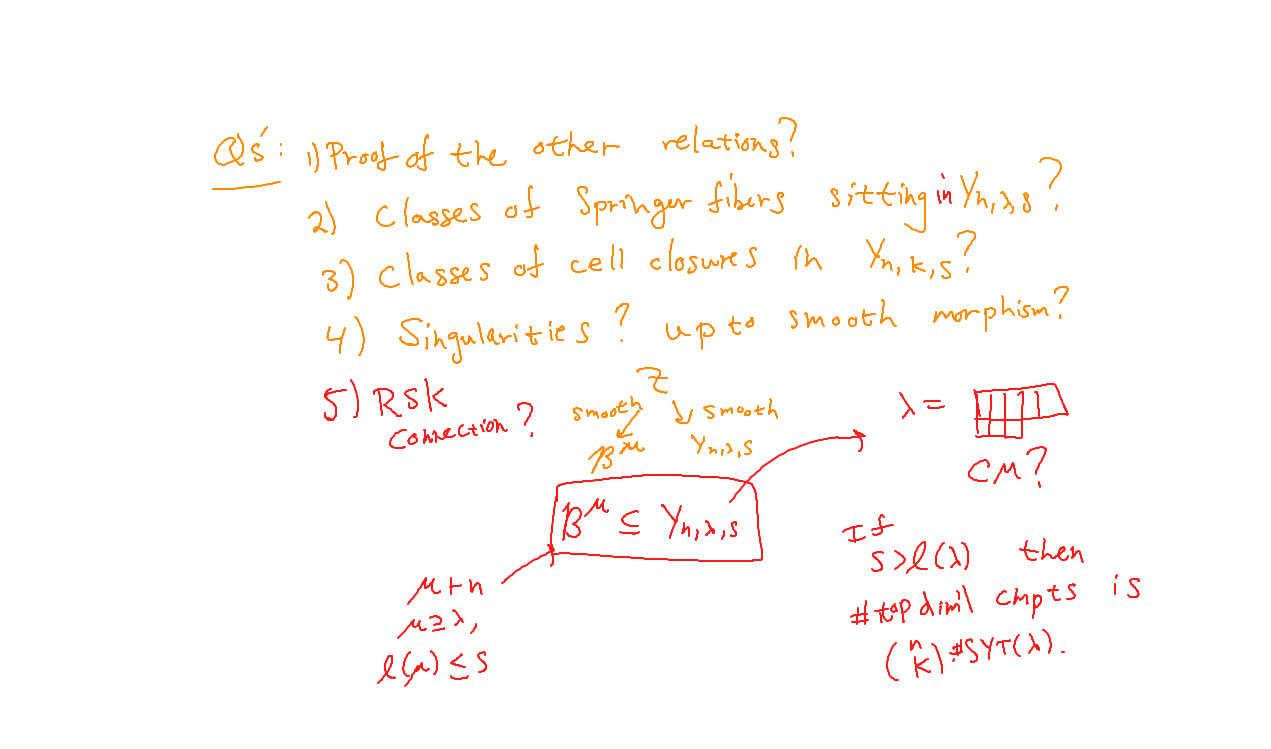 Q's: 1) Proof of the other relations?
2) Classes of Springer fibers sitting in Y_{n,λ,s}?
3) Classes of cell closures in Y_{n,k,s}?
4) Singularities? up to smooth morphism?
5) RSK connection?
Z
smooth ↙ ↘ smooth
B^μ Y_{n,λ,s}
λ =
CM?
B^μ ⊆ Y_{n,λ,s}
μ ⊢ n
μ ⊇ λ,
ℓ(μ) ≤ s
If
s > ℓ(λ) then
# top dim'l cmpts is
(n k) · #SYT(λ).